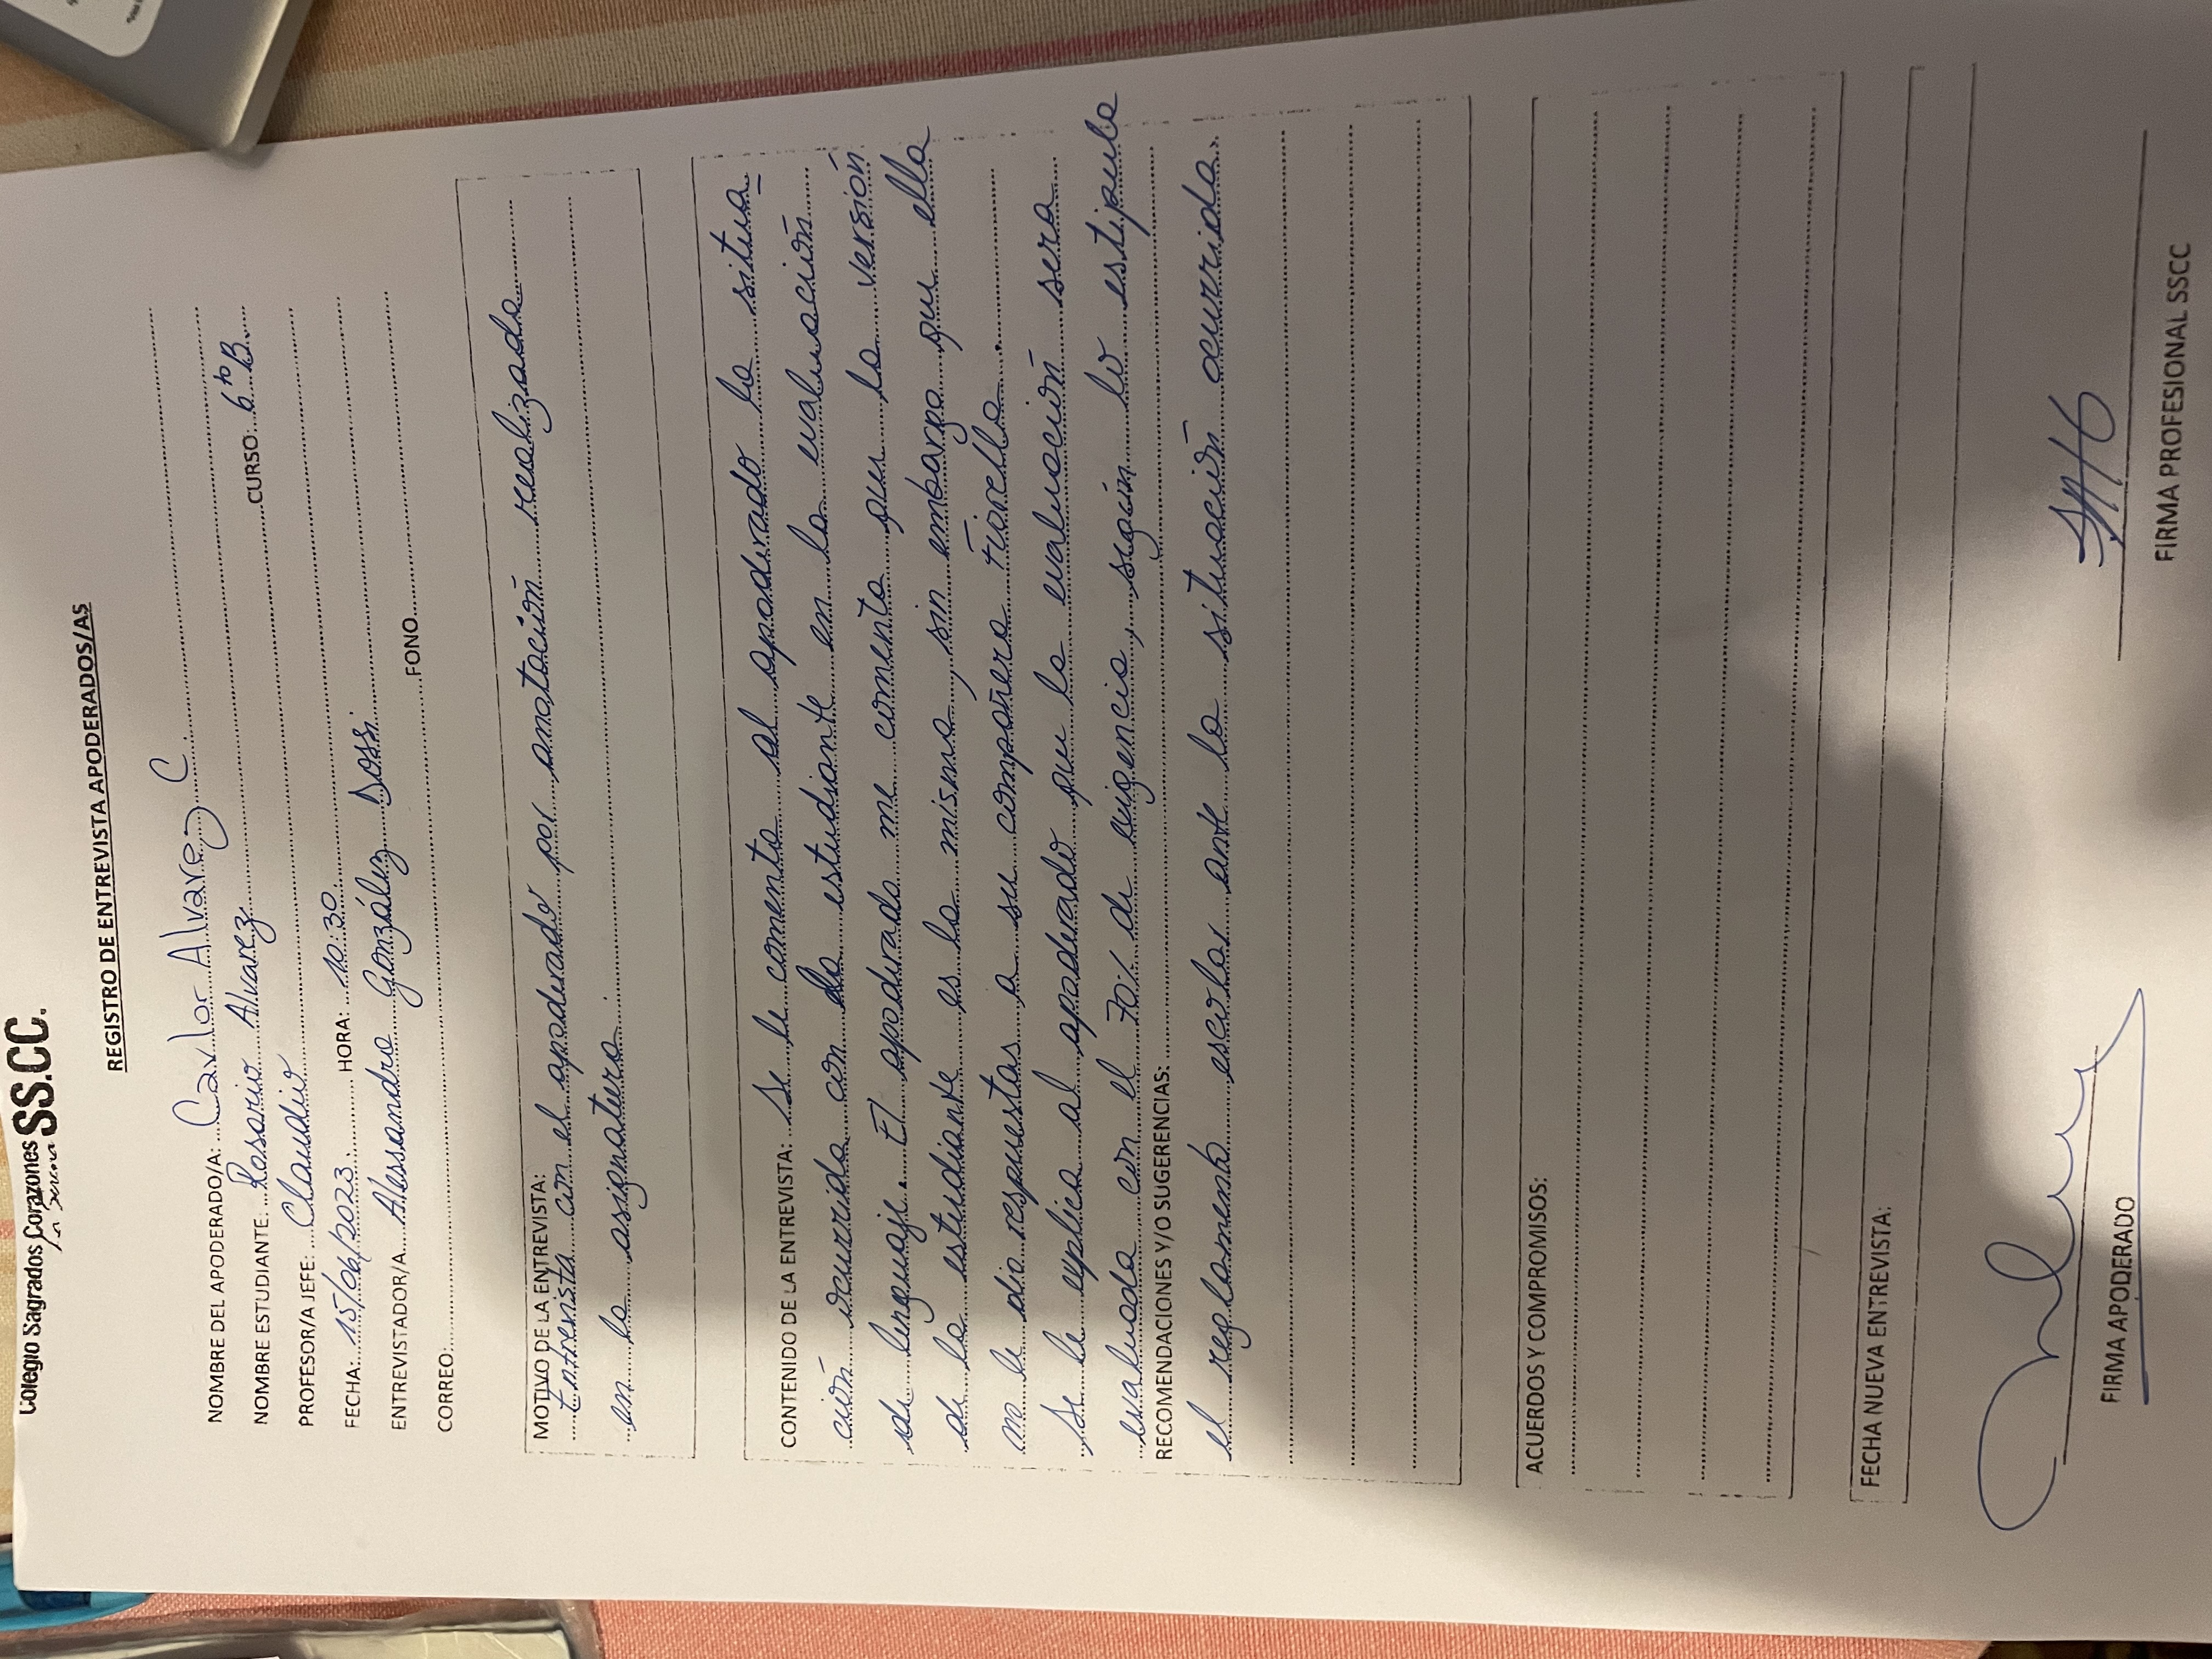 Colegio Sagrados Corazones SS.CC.
La Serena
REGISTRO DE ENTREVISTA APODERADOS/AS
NOMBRE DEL APODERADO/A: Carlos Alvarez C
NOMBRE ESTUDIANTE: Rosario Alvarez CURSO: 6to B
PROFESOR/A JEFE: Claudio
FECHA: 15/06/2023 HORA: 10:30
ENTREVISTADOR/A Alessandra González Dossi
CORREO: FONO
MOTIVO DE LA ENTREVISTA:
Entrevista con el apoderado por anotación realizada
en la asignatura.
CONTENIDO DE LA ENTREVISTA: Se le comenta al apoderado la situa-
ción ocurrida con la estudiante en la evaluación
de lenguaje. El apoderado me comenta que la versión
de la estudiante es la misma, sin embargo que ella
no le dio respuestas a su compañera Fiorella.
Se le explica al apoderado que la evaluación sera
evaluada con el 70% de exigencia, según lo estipula
RECOMENDACIONES Y/O SUGERENCIAS:
el reglamento escolar ante la situación ocurrida.
ACUERDOS Y COMPROMISOS:
FECHA NUEVA ENTREVISTA:
FIRMA APODERADO FIRMA PROFESIONAL SSCC